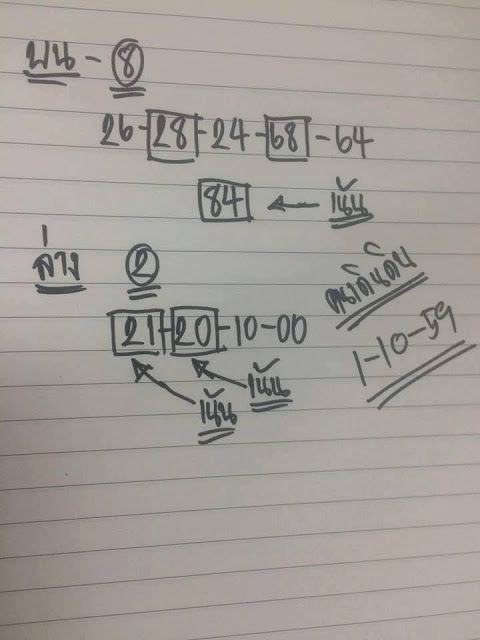 บน - 8
26-28-24-68-64
84 ← เน้น
ล่าง 2
21-20-10-00
เน้น เน้น
คนเดินดิน
1-10-59